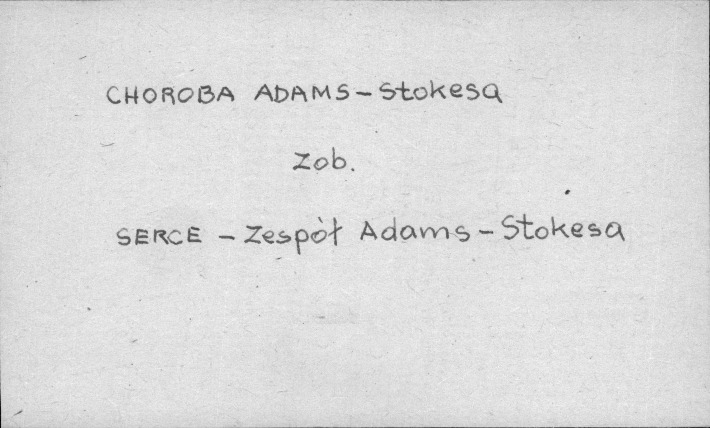 CHOROBA ADAMS-Stokesa
Zob.
SERCE - Zespół Adams-Stokesa